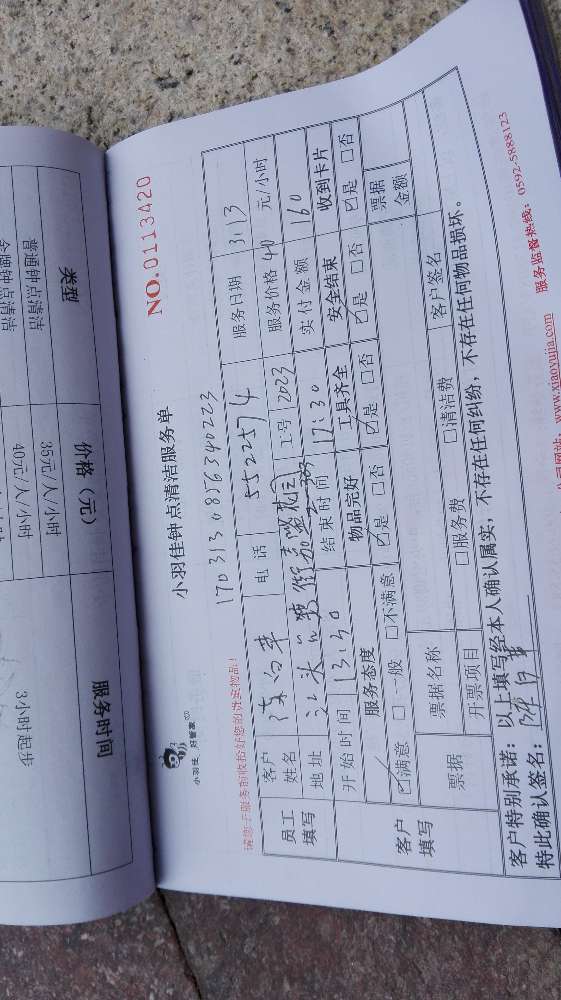 类型 价格（元） 服务时间
普通钟点清洁 35元/人/小时 3小时起步
金牌钟点清洁 40元/人/小时
小羽佳 好管家
小羽佳钟点清洁服务单 NO.0113420
1703130856340223
请您于服务前收拾好您的贵重物品！
员工填写 客户姓名 陈白苹 电话 5522574 服务日期 3.13
地址 工号 2023 服务价格 40 元/小时
开始时间 13:30 结束时间 17:30 实付金额 160
客户填写 服务态度 物品完好 工具齐全 安全结束 收到卡片
☑满意 □一般 □不满意 ☑是 □否 ☑是 □否 ☑是 □否 ☑是 □否
票据 票据名称 票据金额
开票项目 □服务费 □清洁费 客户签名
客户特别承诺：以上填写经本人确认属实，不存在任何纠纷，不存在任何物品损坏。
特此确认签名：陈白苹
公司网站：www.xiaoyujia.com 服务监督热线：0592-5888123